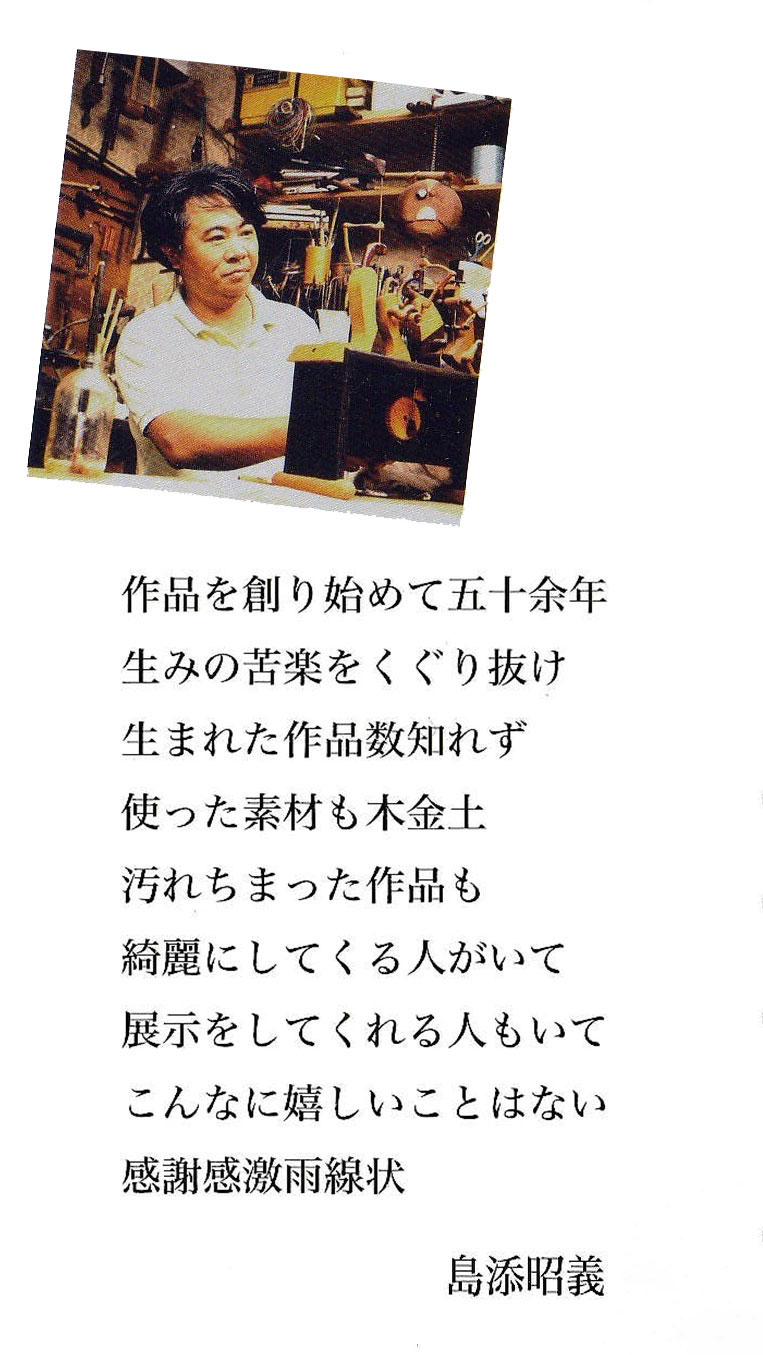 作品を創り始めて五十余年
生みの苦楽をくぐり抜け
生まれた作品数知れず
使った素材も木金土
汚れちまった作品も
綺麗にしてくる人がいて
展示をしてくれる人もいて
こんなに嬉しいことはない
感謝感激雨線状
島添昭義